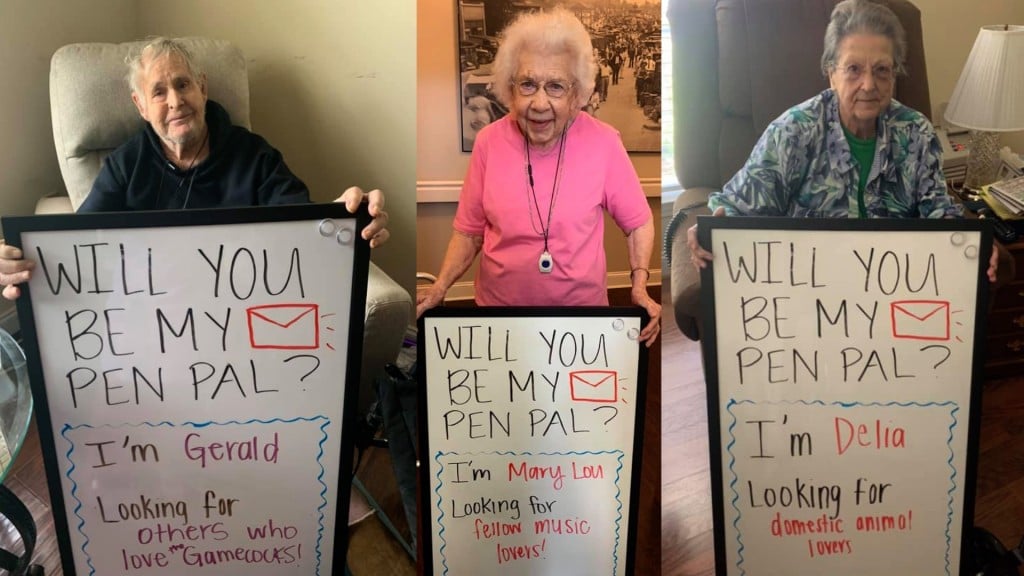 WILL YOU
BE MY
PEN PAL?
I'm Gerald
Looking for
others who
love the Gamecocks!
WILL YOU
BE MY
PEN PAL?
I'm Mary Lou
Looking for
fellow music
lovers!
WILL YOU
BE MY
PEN PAL?
I'm Delia
Looking for
domestic animal
lovers